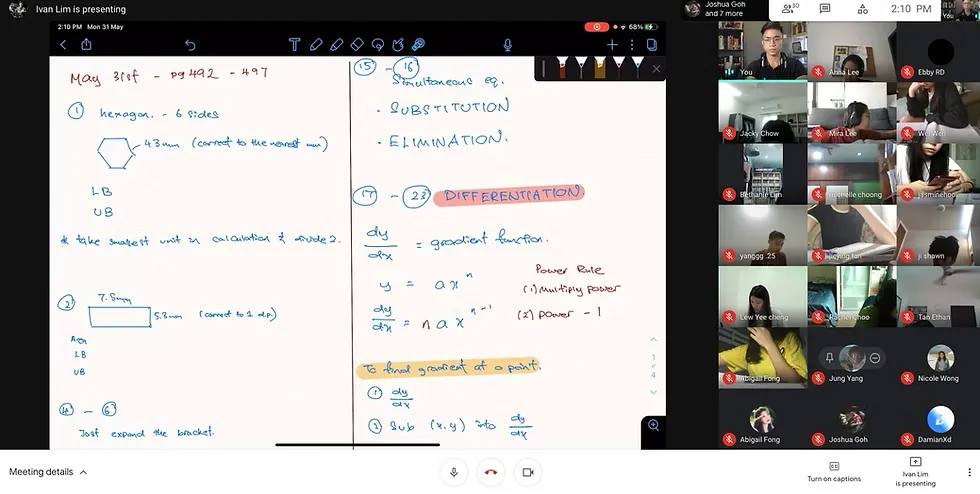 Ivan Lim is presenting
Joshua Goh
and 7 more
30
2:10 PM
You
2:10 PM Mon 31 May
68%
May 31st - pg 492 - 497
① hexagon. - 6 sides
43mm (correct to the nearest mm)
LB
UB
* take smallest unit in calculation & divide 2.
② 7.5mm
5.3mm (correct to 1 dp)
Area
LB
UB
④ - ⑥
Just expand the bracket.
⑮ - ⑯
Simultaneous eq.
· SUBSTITUTION
· ELIMINATION.
⑰ - ㉓ DIFFERENTIATION
dy/dx = gradient function.
y = ax^n
Power Rule
(1) Multiply power
dy/dx = n a x^n-1
(2) power - 1
To find gradient at a point.
① dy/dx
② Sub (x,y) into dy/dx
1
/
4
You
Anna Lee
Ebby RD
Jacky Chow
Mira Lee
Wei Wen
Bethanie Lim
michelle choong
jasminehoo
yanggg .25
jieying tun
ji shawn
Lew Yee cheng
Rachel Choo
Tan Ethan
Abigail Fong
Jung Yang
Nicole Wong
Abigail Fong
Joshua Goh
DamianXd
Meeting details
Turn on captions
Ivan Lim
is presenting